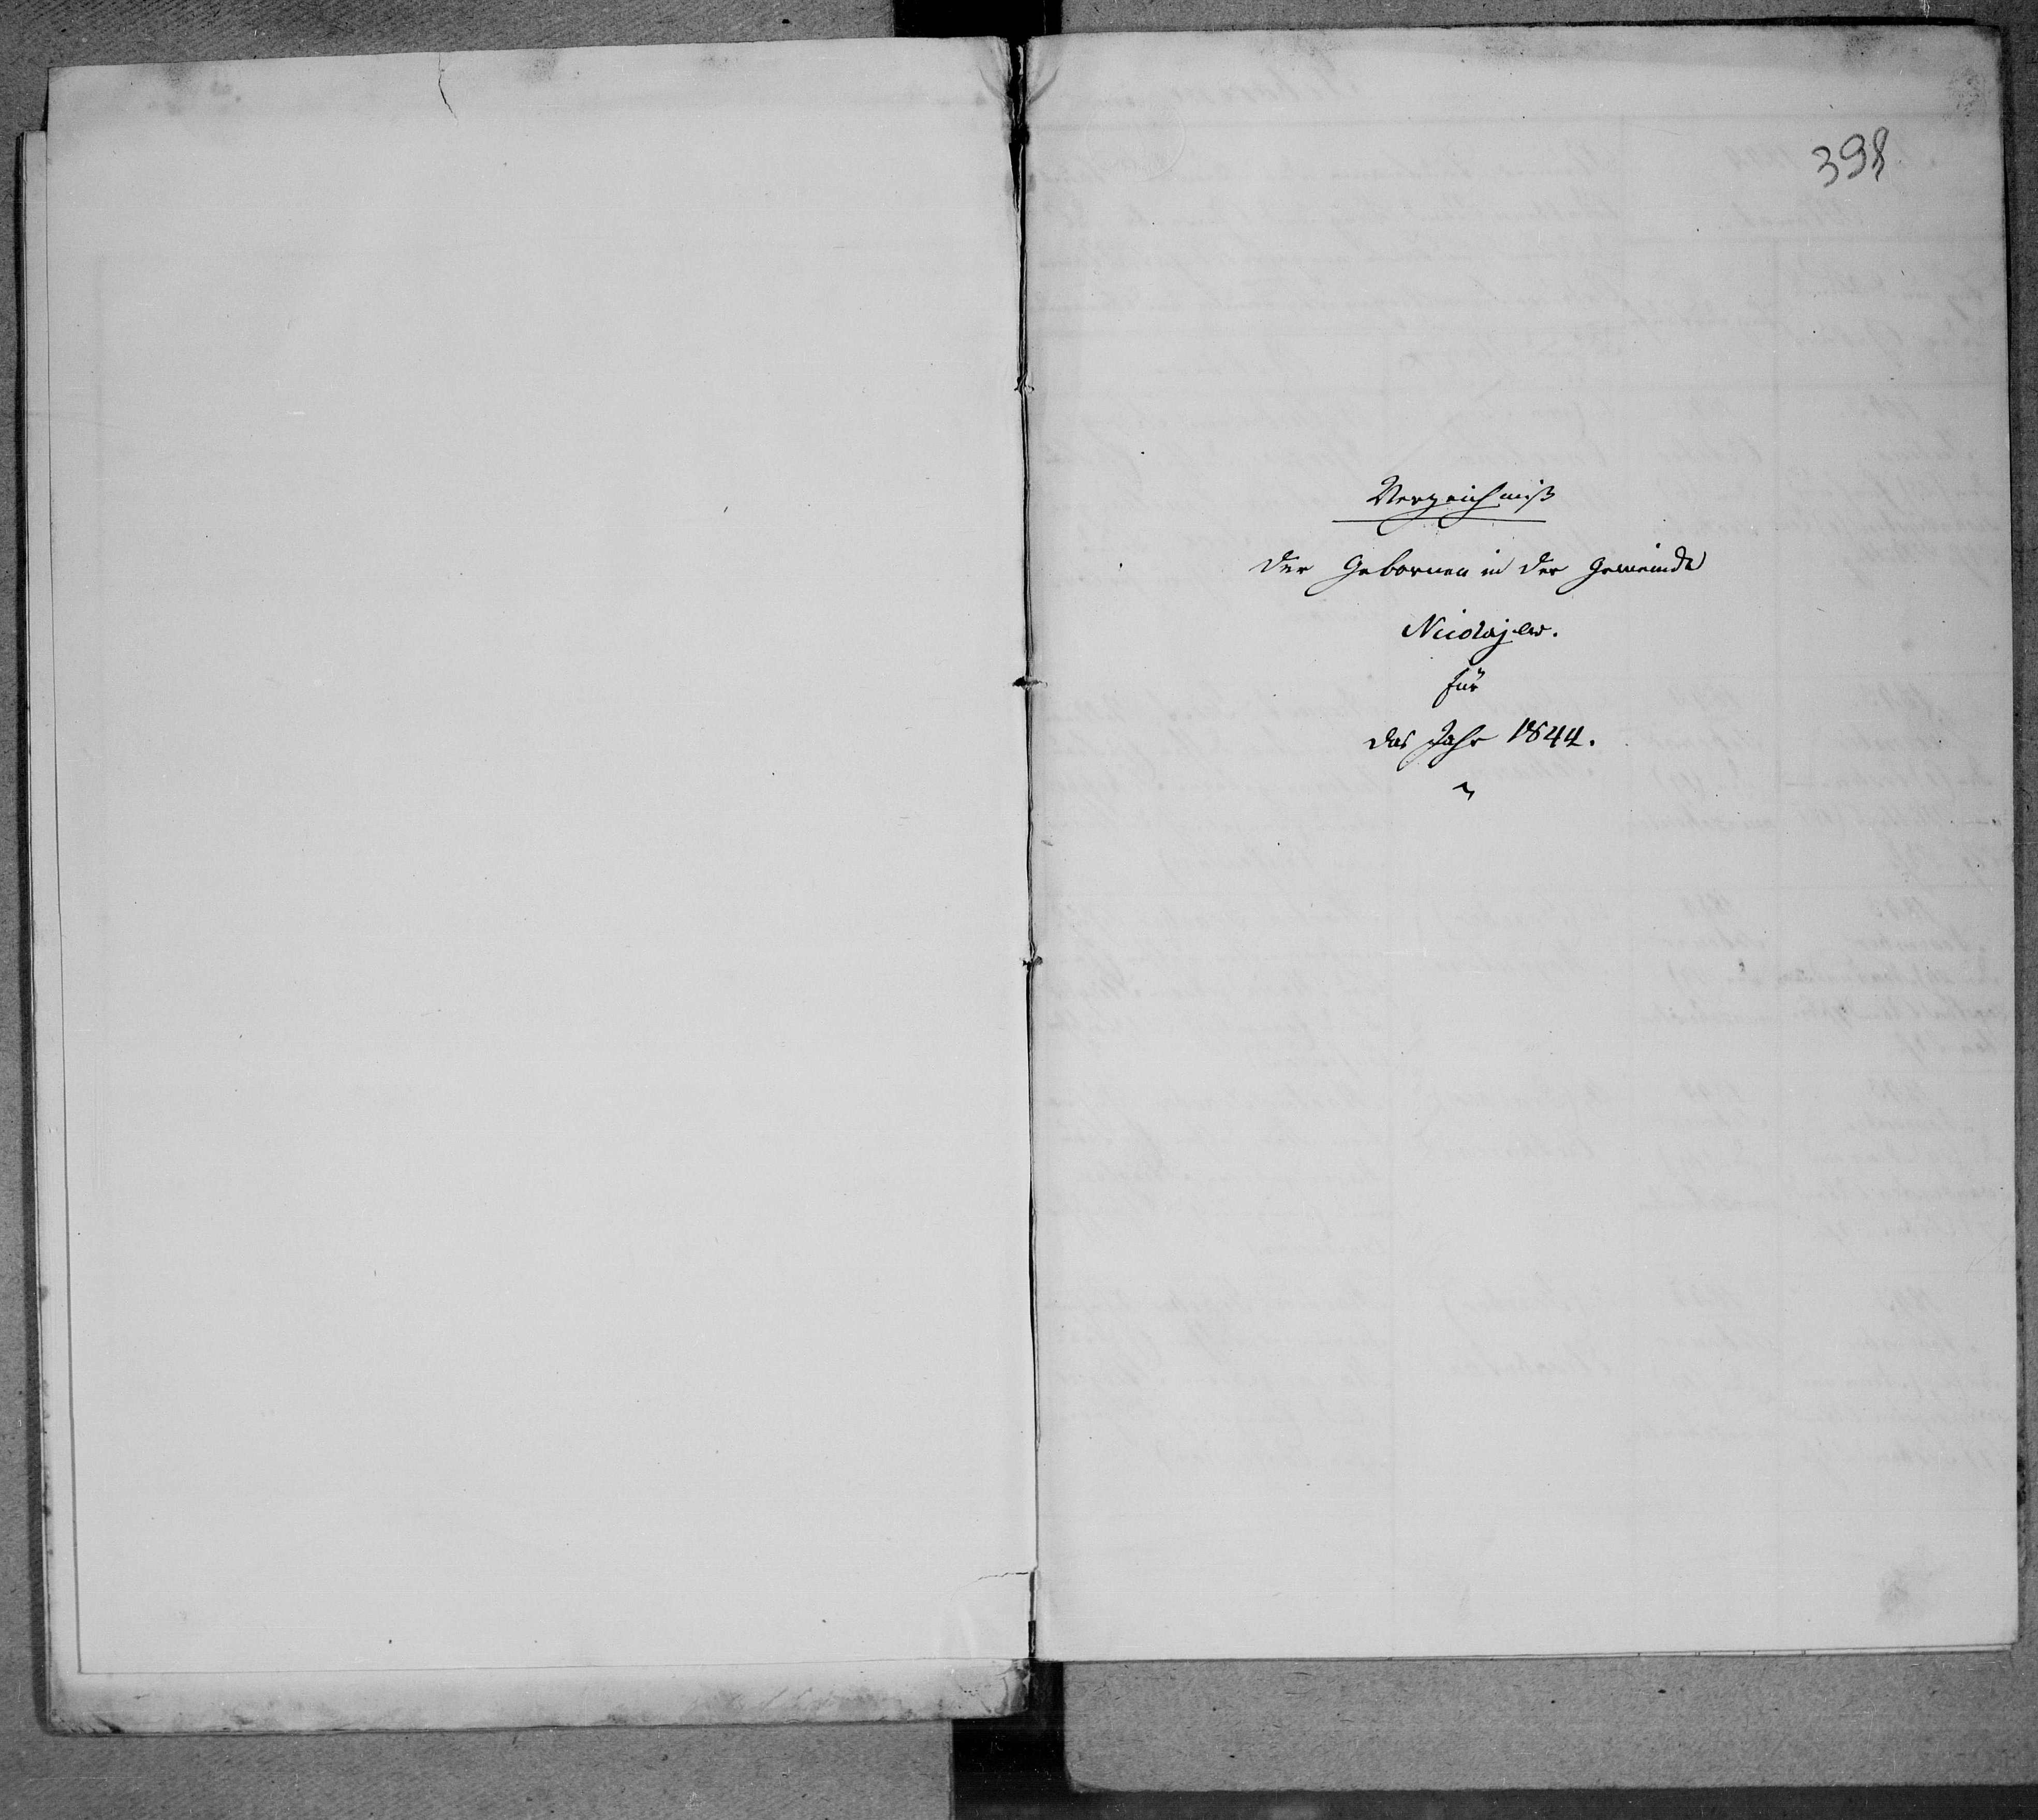 398
Verzeichniß
der Gebornen in der Gemeinde
Nicolajew.
für
das Jahr 1844.